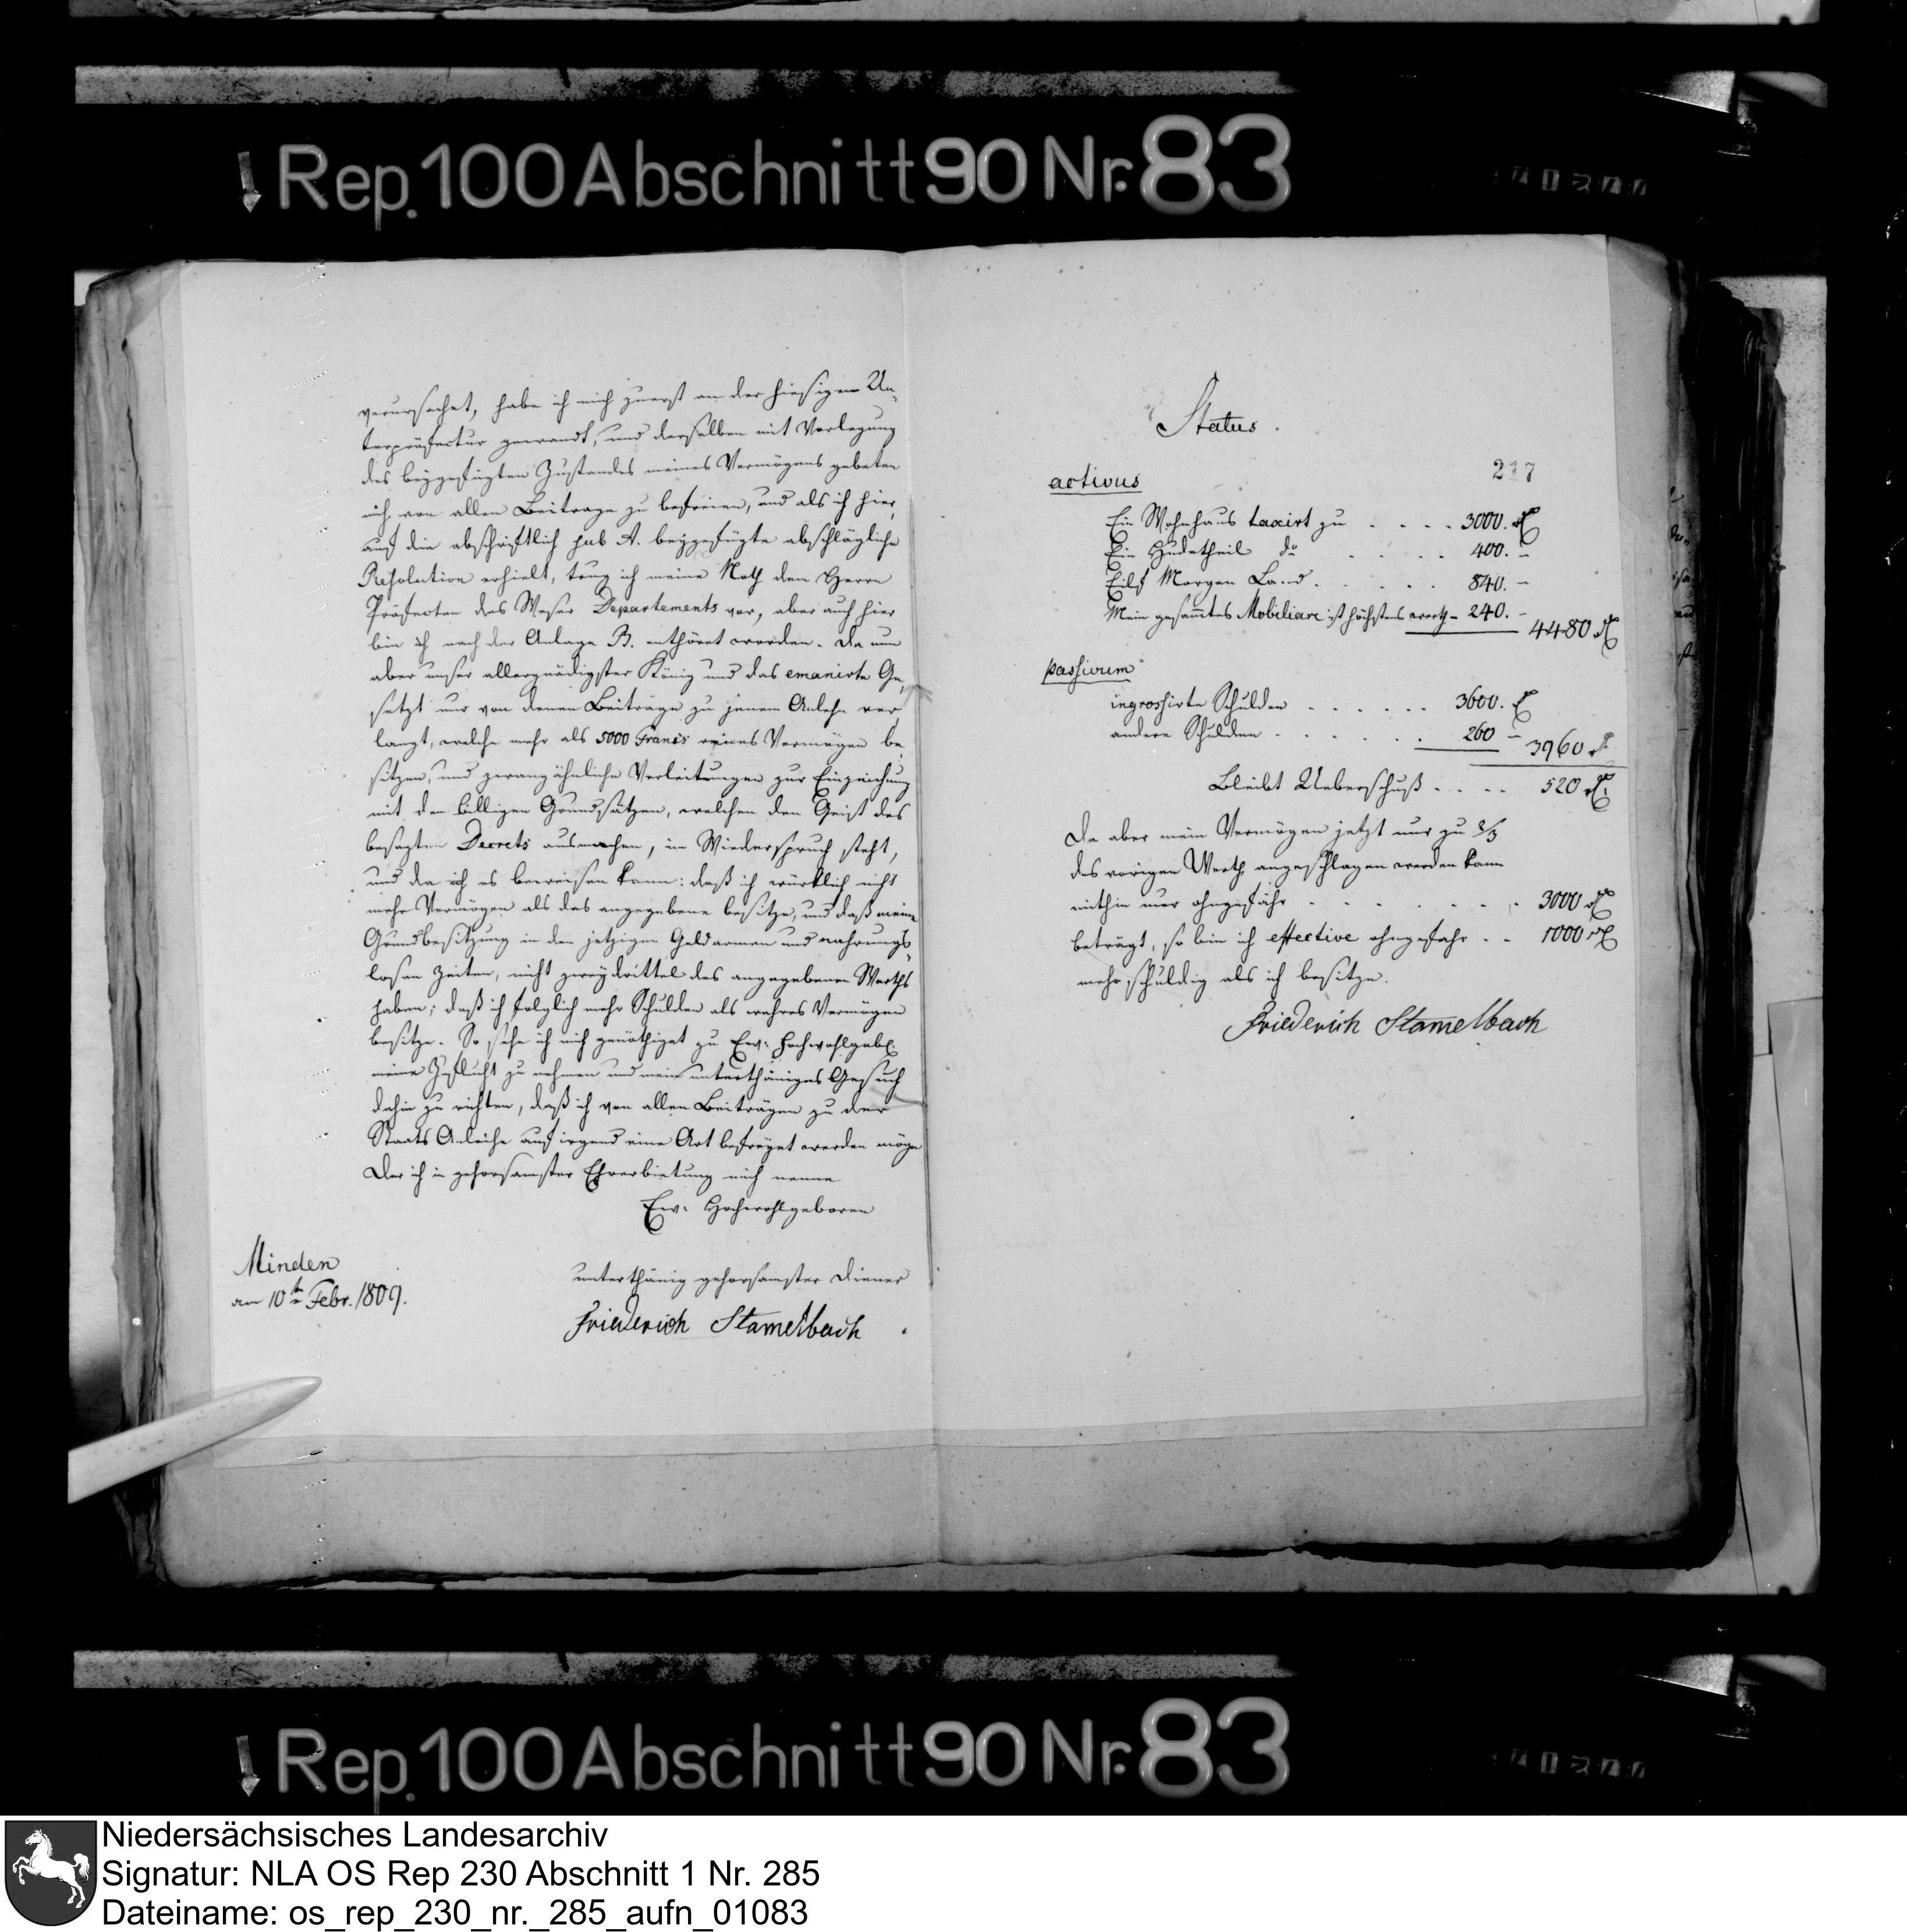 Rep. 100 Abschnitt 90 Nr. 83
verursachet, habe ich mich zuerst an der hiesigen Un-
terpräfectur gewandt, und derselben mit Vorlegung
des beygefügten Zustandes meines Vermögens gebeten
mich von allen Beitrage zu befreien, und als ich hier
auf die abschriftlich sub A. beygefügte abschlägliche
Resolution erhielt, trug ich meine Noth dem Herrn
Präfecten des Weser Departements vor, aber auch hier
bin ich nach der Anlage B. enthöret worden. Da nun
aber unser allergnädigster König und das emanirte Ge-
setzt nur von denen Beiträge zu jenem Anlehn ver
langt, welche mehr als 5000 Francs reines Vermögen be
sitzen, und zwangähnliche Verleitungen zur Einzeichnung
mit den billigen Grundsätzen, welchen den Geist des
besagten Decrets ausmachen, im Wiederspruch steht,
und da ich es beweisen kann: daß ich würklich nicht
mehr Vermögen als das angegebene besitze, und daß meine
Grundbesitzung in den jetzigen Geldarmen und nahrungs-
losen Zeiten, nicht zweydrittel des angegebenen Werths
haben; daß ich folglich mehr Schulden als wahres Vermögen
besitze. So sehe ich mich genöthiget zu Ew: Hochwohlgebl.
meine Zuflucht zu nehmen und mein unterthäniges Gesuch
dahin zu richten, daß ich von allen Beiträgen zu der
Staats Anleihe auf irgend eine Art befreyet werden möge
Der ich in gehorsamster Ehrerbietung mich nenne
Ew: Hochwohlgeboren
Minden
am 10tn Febr. 1809.
unterthänig gehorsamster Diener
Friederich Stamelbach
Status.
217
activus
Ein Wohnhaus taxirt zu . . . . 3000. rℓ
Ein Hudetheil do . . . . 400. -
Eilf Morgen Land . . . . . 840. -
Mein gesam̄tes Mobiliare ist höchstens werth - 240. -
4480 rℓ
passivum
ingrossirte Schulden . . . . . . 3600. rℓ
andere Schulden . . . . . . . 260 -
3960 rℓ
Bleibt Ueberschuß . . . . 520 rℓ.
Da aber mein Vermögen jetzt nur zu 2/3
des vorigen Werth angeschlagen werden kann
mithin nur ohngefähr . . . . . . . 3000 rℓ
beträgt, so bin ich effective ohngefähr . . 1000 rℓ
mehr schuldig als ich besitze.
Friederich Stamelbach
Rep. 100 Abschnitt 90 Nr. 83
Niedersächsisches Landesarchiv
Signatur: NLA OS Rep 230 Abschnitt 1 Nr. 285
Dateiname: os_rep_230_nr._285_aufn_01083